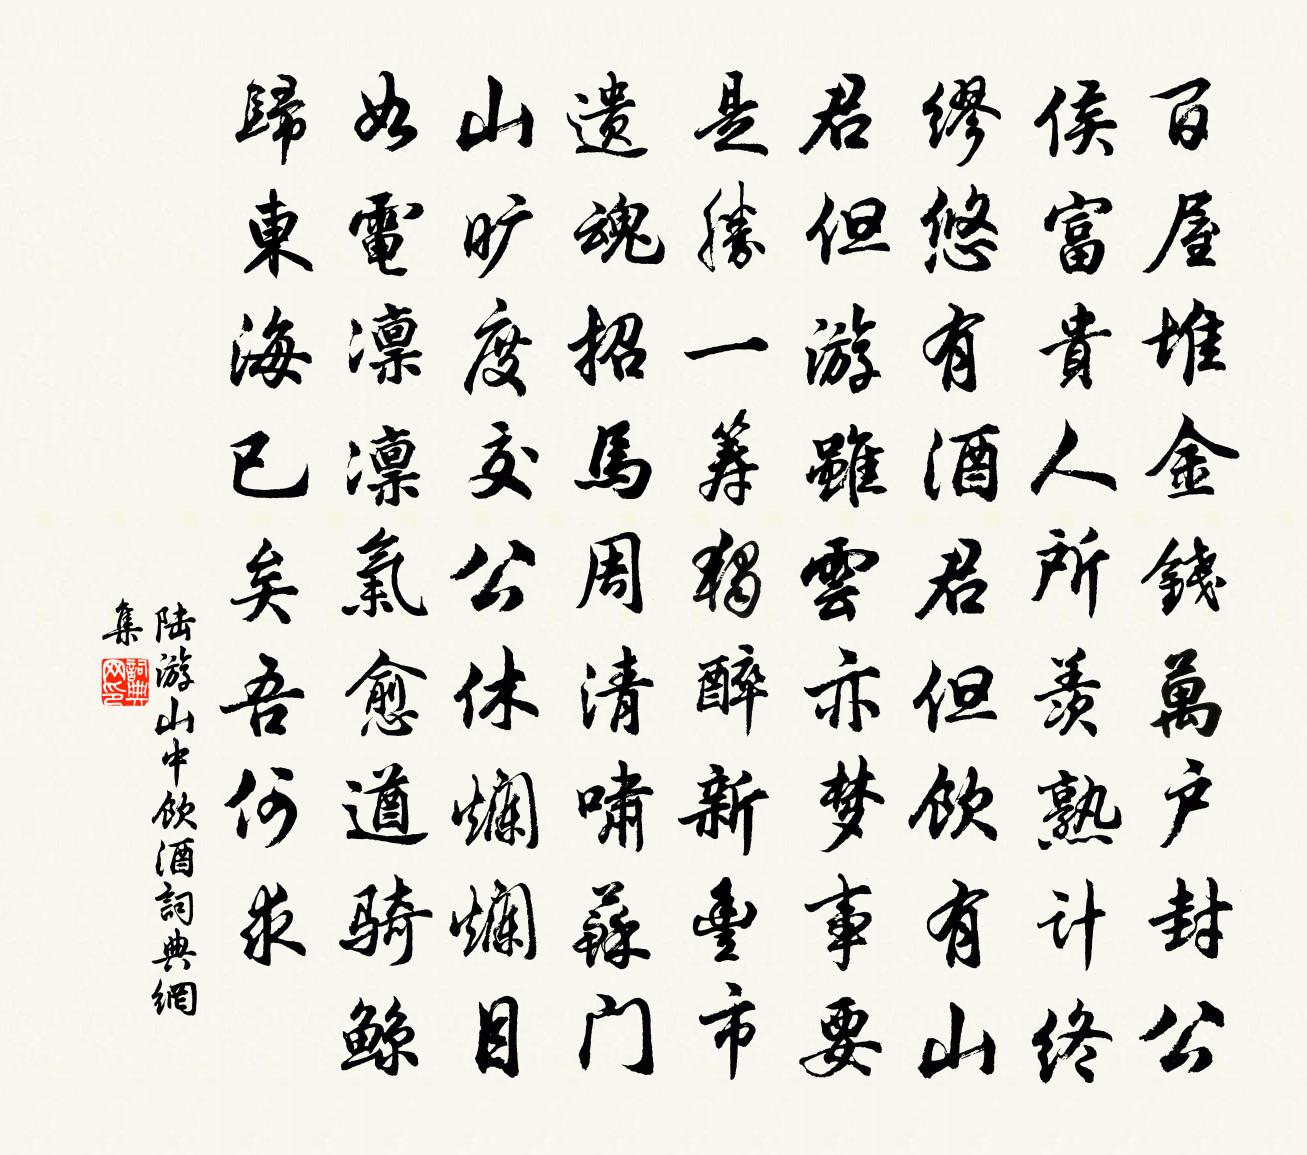 百屋堆金錢萬户封公
侯富貴人所羡熟计终
繆悠有酒君但飲有山
君但游雖雲亦梦事要
是勝一筹獨醉新豐市
遗魂招馬周清嘯蘇门
山旷度交公休爛爛目
如電凛凛氣愈遒骑鲸
歸東海已矣吾何求
陆游山中飲酒詞典網
集
詞典网印